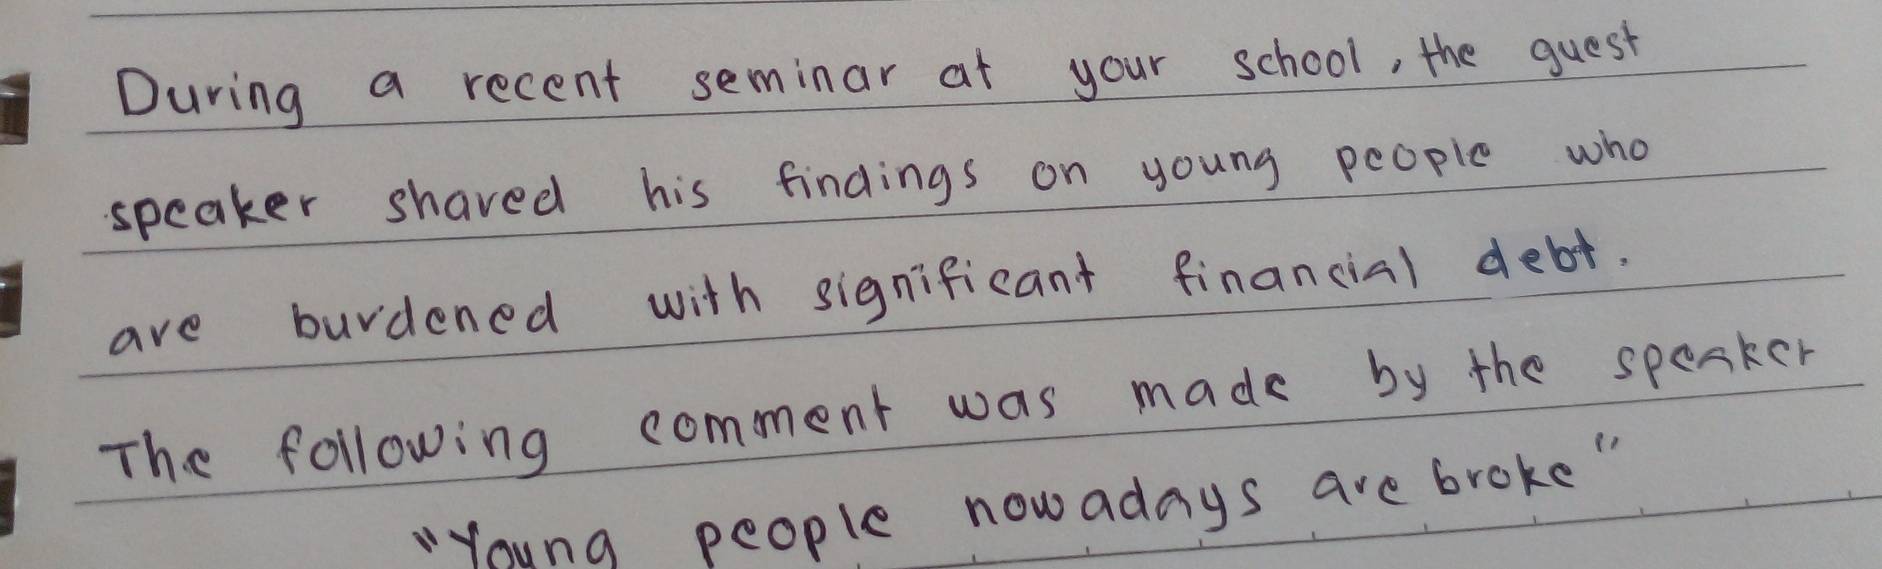 During a recent seminar at your school, the guest
speaker shared his findings on young people who
are burdened with significant financial debt.
The following comment was made by the speaker
"Young people nowadays are broke"